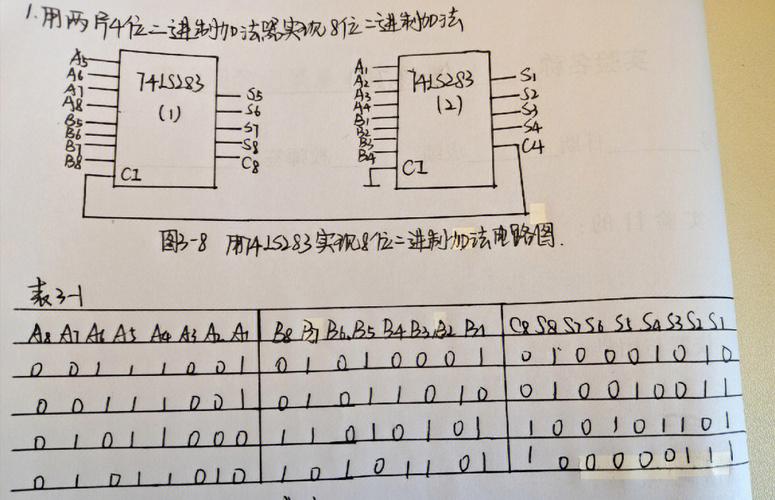 1.用两片4位二进制加法器实现8位二进制加法
A5
A6
A7
A8
B5
B6
B7
B8
74LS283
(1)
CI
S5
S6
S7
S8
C8
A1
A2
A3
A4
B1
B2
B3
B4
74LS283
(2)
CI
S1
S2
S3
S4
C4
图3-8 用74LS283实现8位二进制加法电路图.
表3-1
A8 A7 A6 A5 A4 A3 A2 A1 B8 B7 B6 B5 B4 B3 B2 B1 C8 S8 S7 S6 S5 S4 S3 S2 S1
0 0 1 1 1 0 0 1 0 1 0 1 0 0 0 1 0 1 0 0 0 1 0 1 0
0 0 1 1 1 0 0 1 0 1 0 1 1 0 1 0 0 1 0 0 1 0 0 1 1
0 1 0 1 1 0 0 0 1 1 0 1 0 1 0 1 1 0 0 1 0 1 1 0 1
0 1 0 1 1 0 1 0 1 0 1 0 1 1 0 1 1 0 0 0 0 0 1 1 1